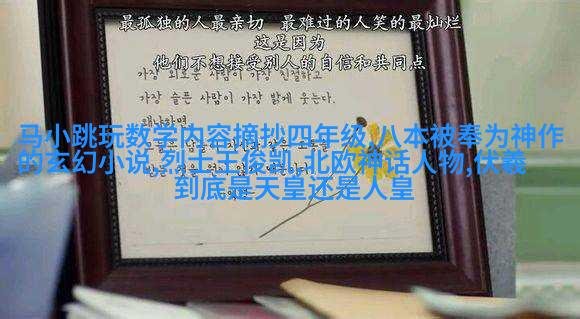 最孤独的人最亲切 最难过的人笑的最灿烂
这是因为
他们不想接受别人的自信和共同点
가장 외로운 사람이 가장 친절하고
가장 슬픈 사람이 가장 밝게 웃는다.
왜냐하면
马小跳玩数学内容摘抄四年级,八本被奉为神作
的玄幻小说,烈士王俊凯,北欧神话人物,伏羲
到底是天皇还是人皇